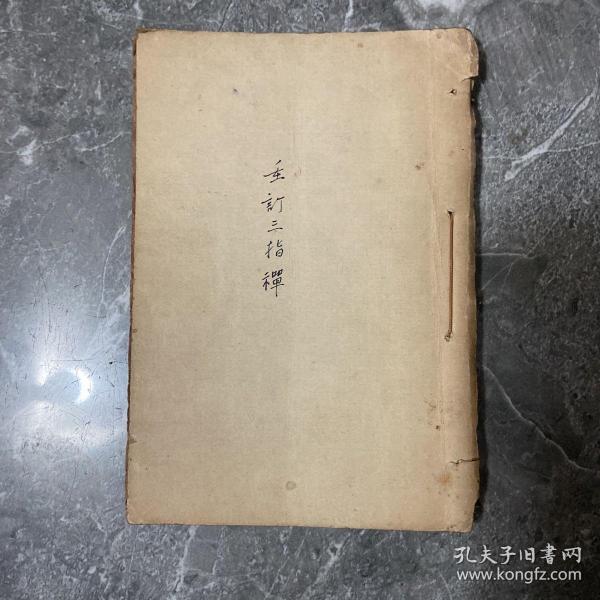 重訂三指禪
孔夫子旧書网
www.kongfz.com